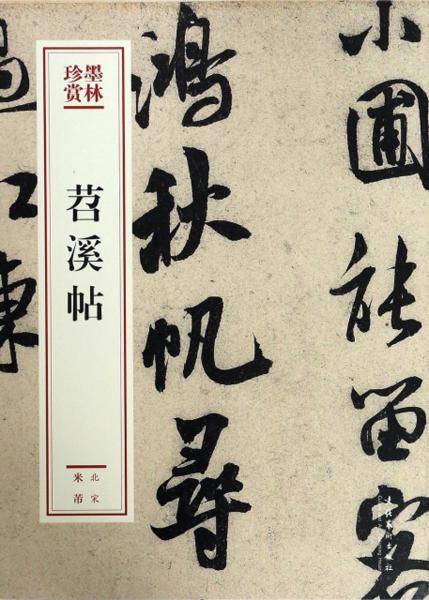 小圃能留客
鴻秋帆尋
過江東
墨林
珍赏
苕溪帖
北宋
米芾